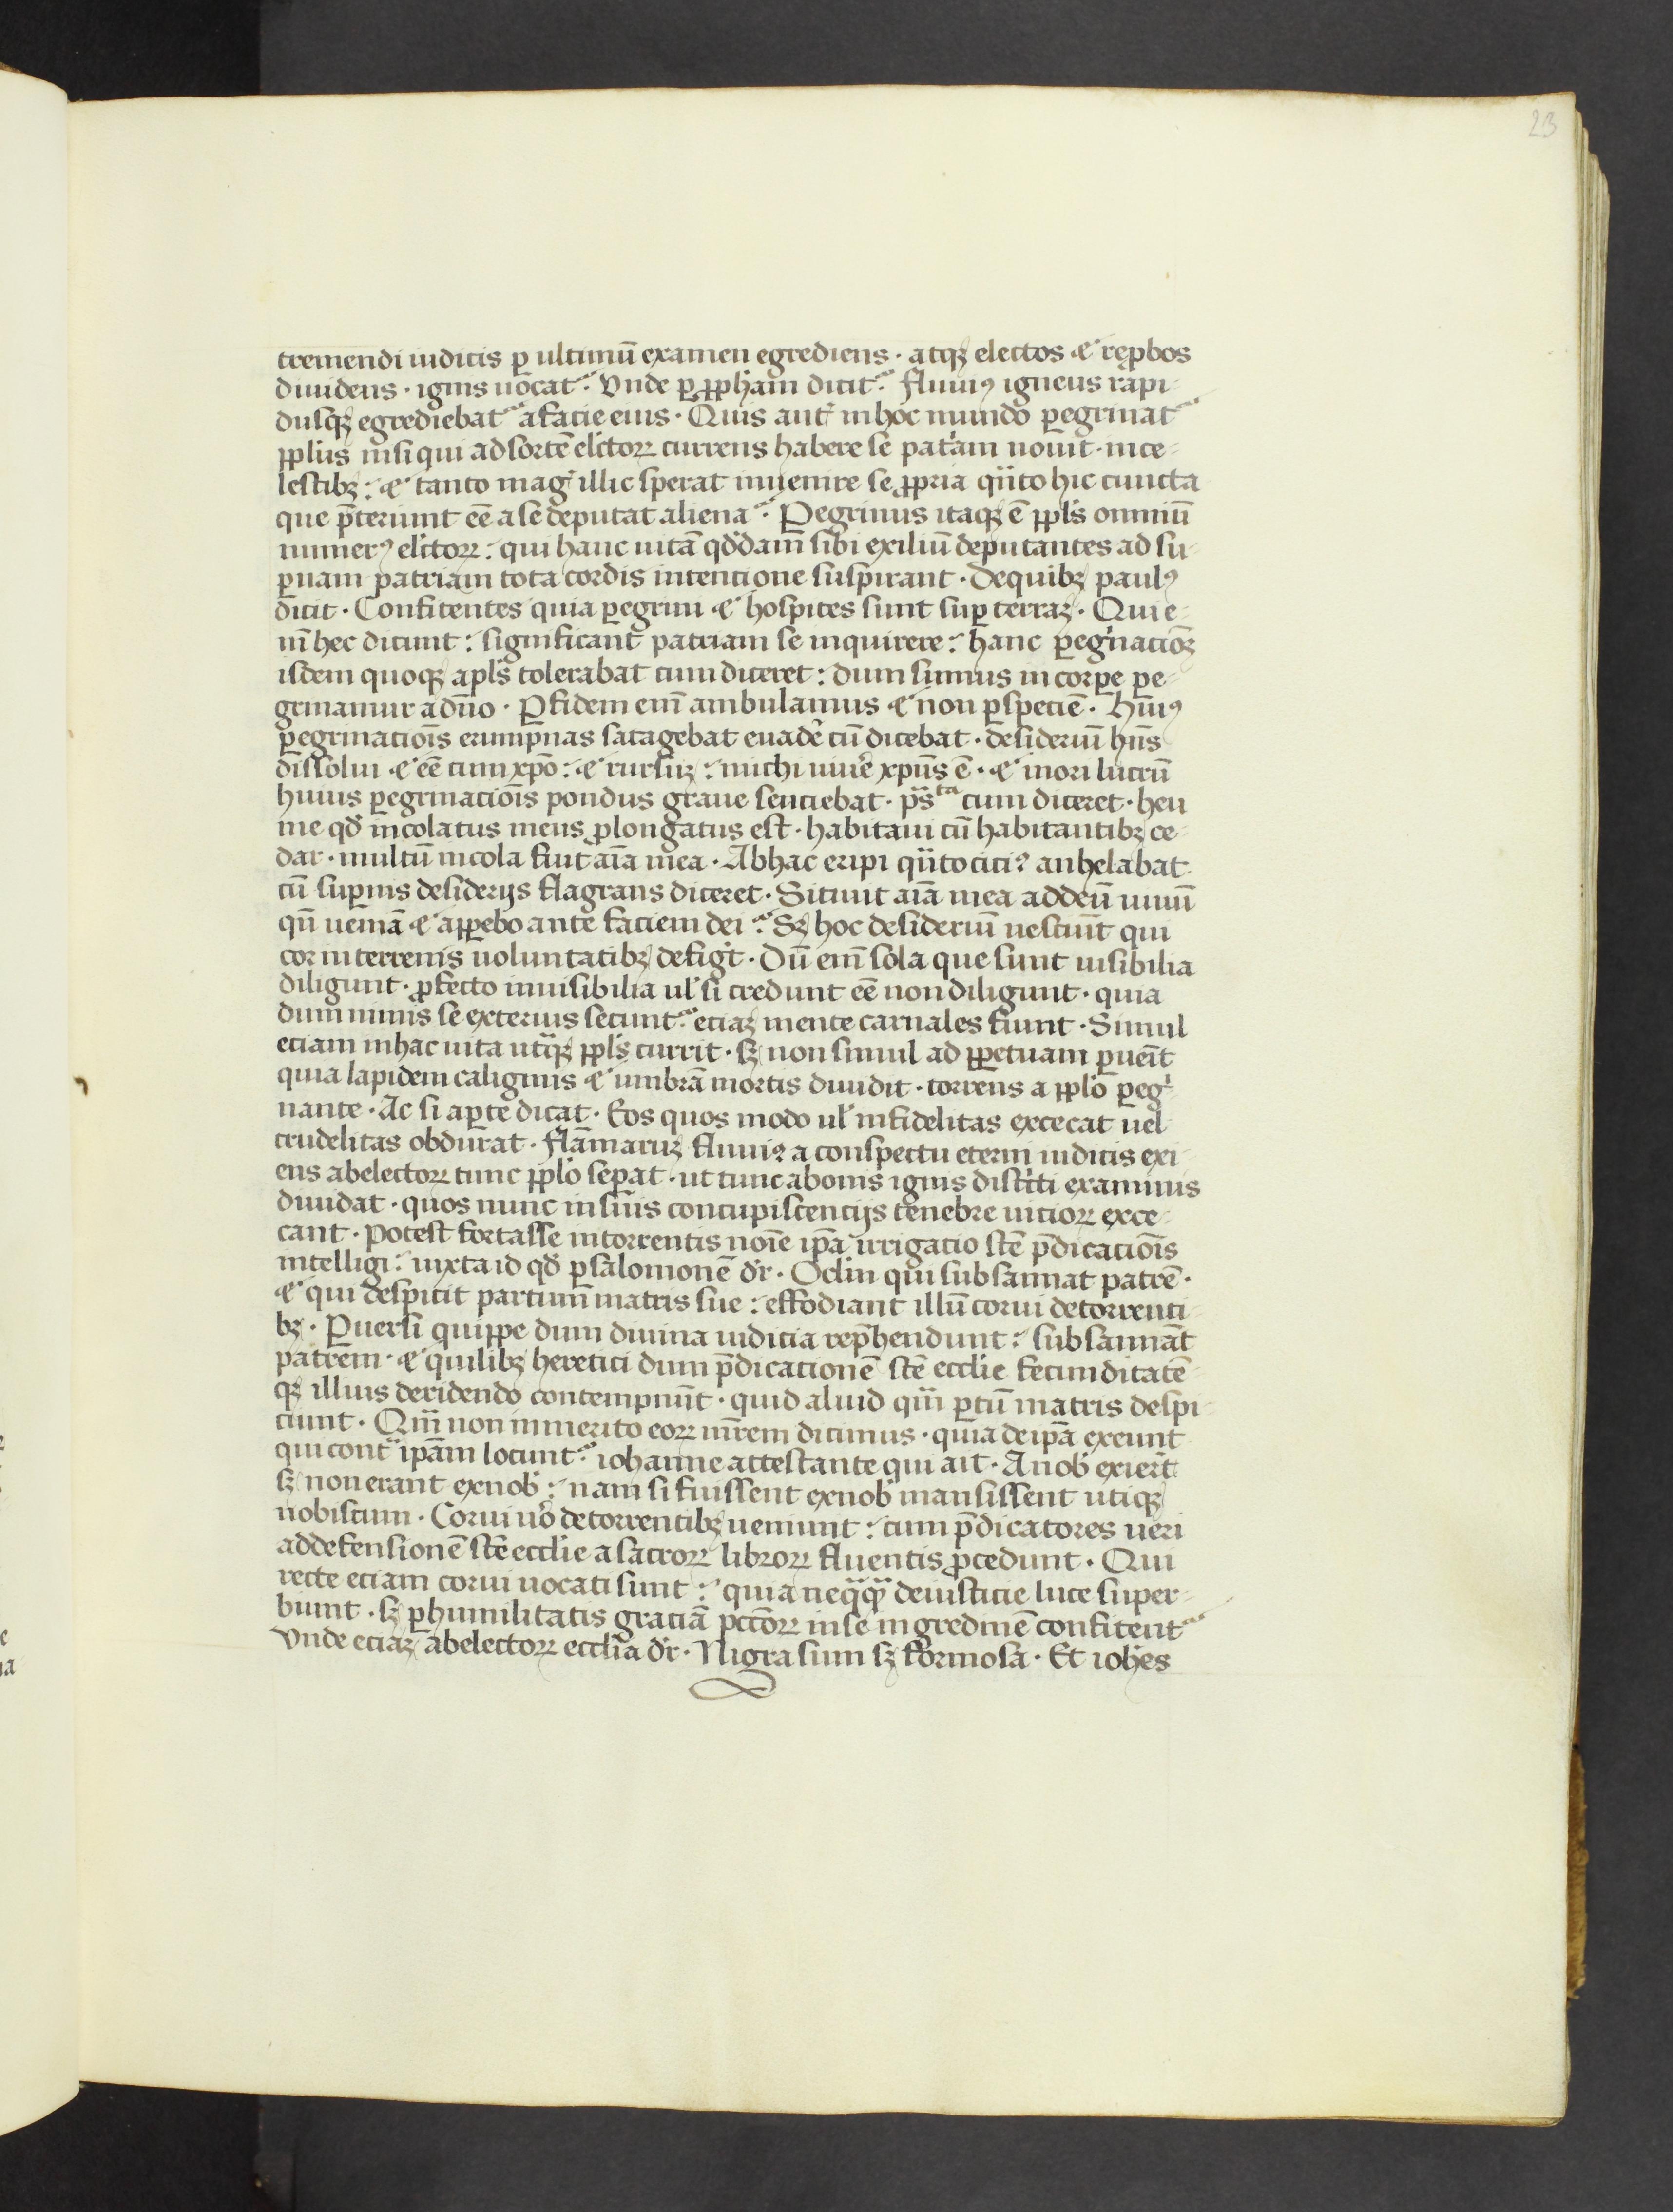 23
tremendi iudicis ꝑ ultimū examen egrediens · atqꝫ electos ⁊ reꝓbos
diuidens · ignis uocat᷑. Vnde ꝑ ꝓpham dicit᷑. fluuiꝰ igneus rapi-
dusqꝫ egrediebat᷑ a facie eius · Quis aut̄ in hoc mundo ꝑegrinat᷑
ppl̓us nisi qui ad sortē elc̄toꝝ currens habere se pat̓am nouit · in ce-
lestibꝫ: ⁊ tanto mag̓ illic sperat inuenire se ꝓpria qͣnto hic cuncta
que p̄tereunt eē a se deputat aliena · Pegrinus itaqꝫ ē ppl̓s omniū
numerꝰ elc̄toꝝ: qui hanc uitā qd̓dam sibi exiliū deputantes ad su-
ꝑnam patriam tota cordis intencione suspirant · de quibꝫ paulꝰ
dicit · Confitentes quia ꝑegrini ⁊ hospites sunt suꝑ terraꝫ · Qui e-
nī hec dicunt: significant patriam se inquirere: hanc ꝑeg̓nacio̅ꝫ
isdem quoqꝫ apl̓s tolerabat cum diceret: dum sumus in corꝑe ꝑe-
grinamur a dn̄o · Ꝑ fidem eni̅ ambulamus ⁊ non ꝑ speciē · Hui̅ꝰ
ꝑegrinacio̅is erumpnas satagebat euade̓ cū dicebat · desideriū hn̄s
dissolui ⁊ eē cum xp̄o: ⁊ rursuꝫ: michi uiue̓ xp̄us ē · ⁊ mori lucrū
huius ꝑegrinacio̅is pondus graue senciebat · p̄sta cum diceret · heu
me qd̓ incolatus meus ꝓlongatus est · habitaui cū habitantibꝫ ce-
dar · multū incola fuit ai̅a mea · Ab hac eripi qͣnto citiꝰ anhelabat
cū suꝑnis desiderijs flagrans diceret · Sitiuit ai̅a mea ad deū uiuū
qn̄ ueniā ⁊ apꝑebo ante faciem dei · Sꝫ hoc desideriū nesciūt qui
cor in terrenis uoluntatibꝫ defig̓t · Dū eni̅ sola que sunt uisibilia
diligunt · ꝓfecto inuisibilia ul̓ si credunt eē non diligunt · quia
dum nimis se exterius secunt᷑ eciaꝫ mente carnales fiunt · Simul
eciam in hac uita utriqꝫ ppl̓s currit · sꝫ non simul ad pꝑetuam ꝑuei̅t
quia lapidem caliginis ⁊ umbrā mortis diuidit · torrens a ppl̓o ꝑeg̓-
nante · Ac si aꝑte dicat · Eos quos modo ul̓ infidelitas excecat uel
crudelitas obdurat · flāmaruꝫ fluuiꝰ a conspectu eterni iudicis exi-
ens ab electoꝝ tunc ppl̓o seꝑat · ut tunc ab onis ignis distrīti examinis
diuidat · quos nunc in suis concupiscencijs tenebre uicioꝝ exce-
cant · Potest fortasse in torrentis noīe ip̄a irrigacio stē p̄dicacio̅is
intelligi: iuxta id qd̓ ꝑ salomonē dr̄ · Oclm̄ qui subsannat patrē ·
⁊ qui despicit partum matris sue: effodiant illū corui de torrenti-
bꝫ · Puersi quippe dum diuina iudicia rep̄hendunt: subsannāt
patrem · ⁊ quilibꝫ heretici dum p̄dicacionē stē ecclīe fecunditatē-
qꝫ illius deridendo contempnūt · quid aliud qͣm ꝑtū matris despi-
ciunt · Qͣm non inmerito eoꝝ mr̄em dicimus · quia de ip̄a exeunt
qui contͣ ip̄am locunt᷑ iohanne attestante qui ait · A nob̓ exier̄t
sꝫ non erant ex nob̓: nam si fuissent ex nob̓ mansissent utiqꝫ
nobiscum · Corui uo̓ de torrentibꝫ ueniunt: cum p̄dicatores ueri
ad defensionē stē ecclīe a sacroꝝ libroꝝ fluentis ꝓcedunt · Qui
recte eciam corui uocati sunt: quia neqͣqͣ de iusticie luce super-
biunt · sꝫ ꝑ humilitatis graciā pctōꝝ in se ingredinē confitent᷑
Vnde eciaꝫ ab electoꝝ ecclīa dr̄ · Nigra sum sꝫ formosa · Et ioh̄es